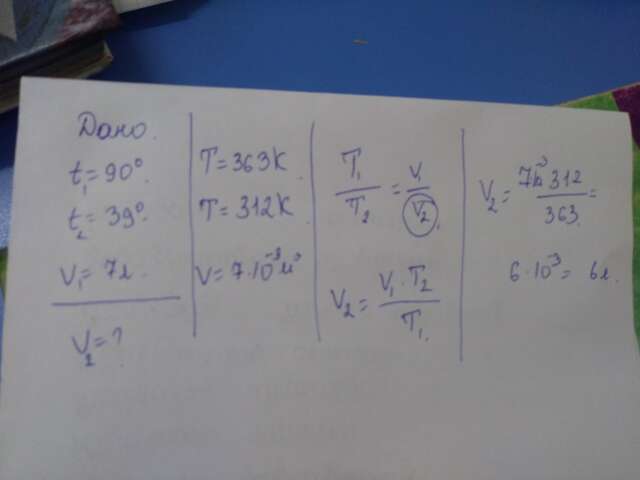 Дано.
t₁=90°.
t₂=39°.
V₁=7л.
V₂=?
T=363K
T=312K
V=7·10⁻³м³
T₁/T₂=V₁/V₂.
V₂=V₁·T₂/T₁.
V₂=7·10⁻³·312/363.=
6·10⁻³= 6л.